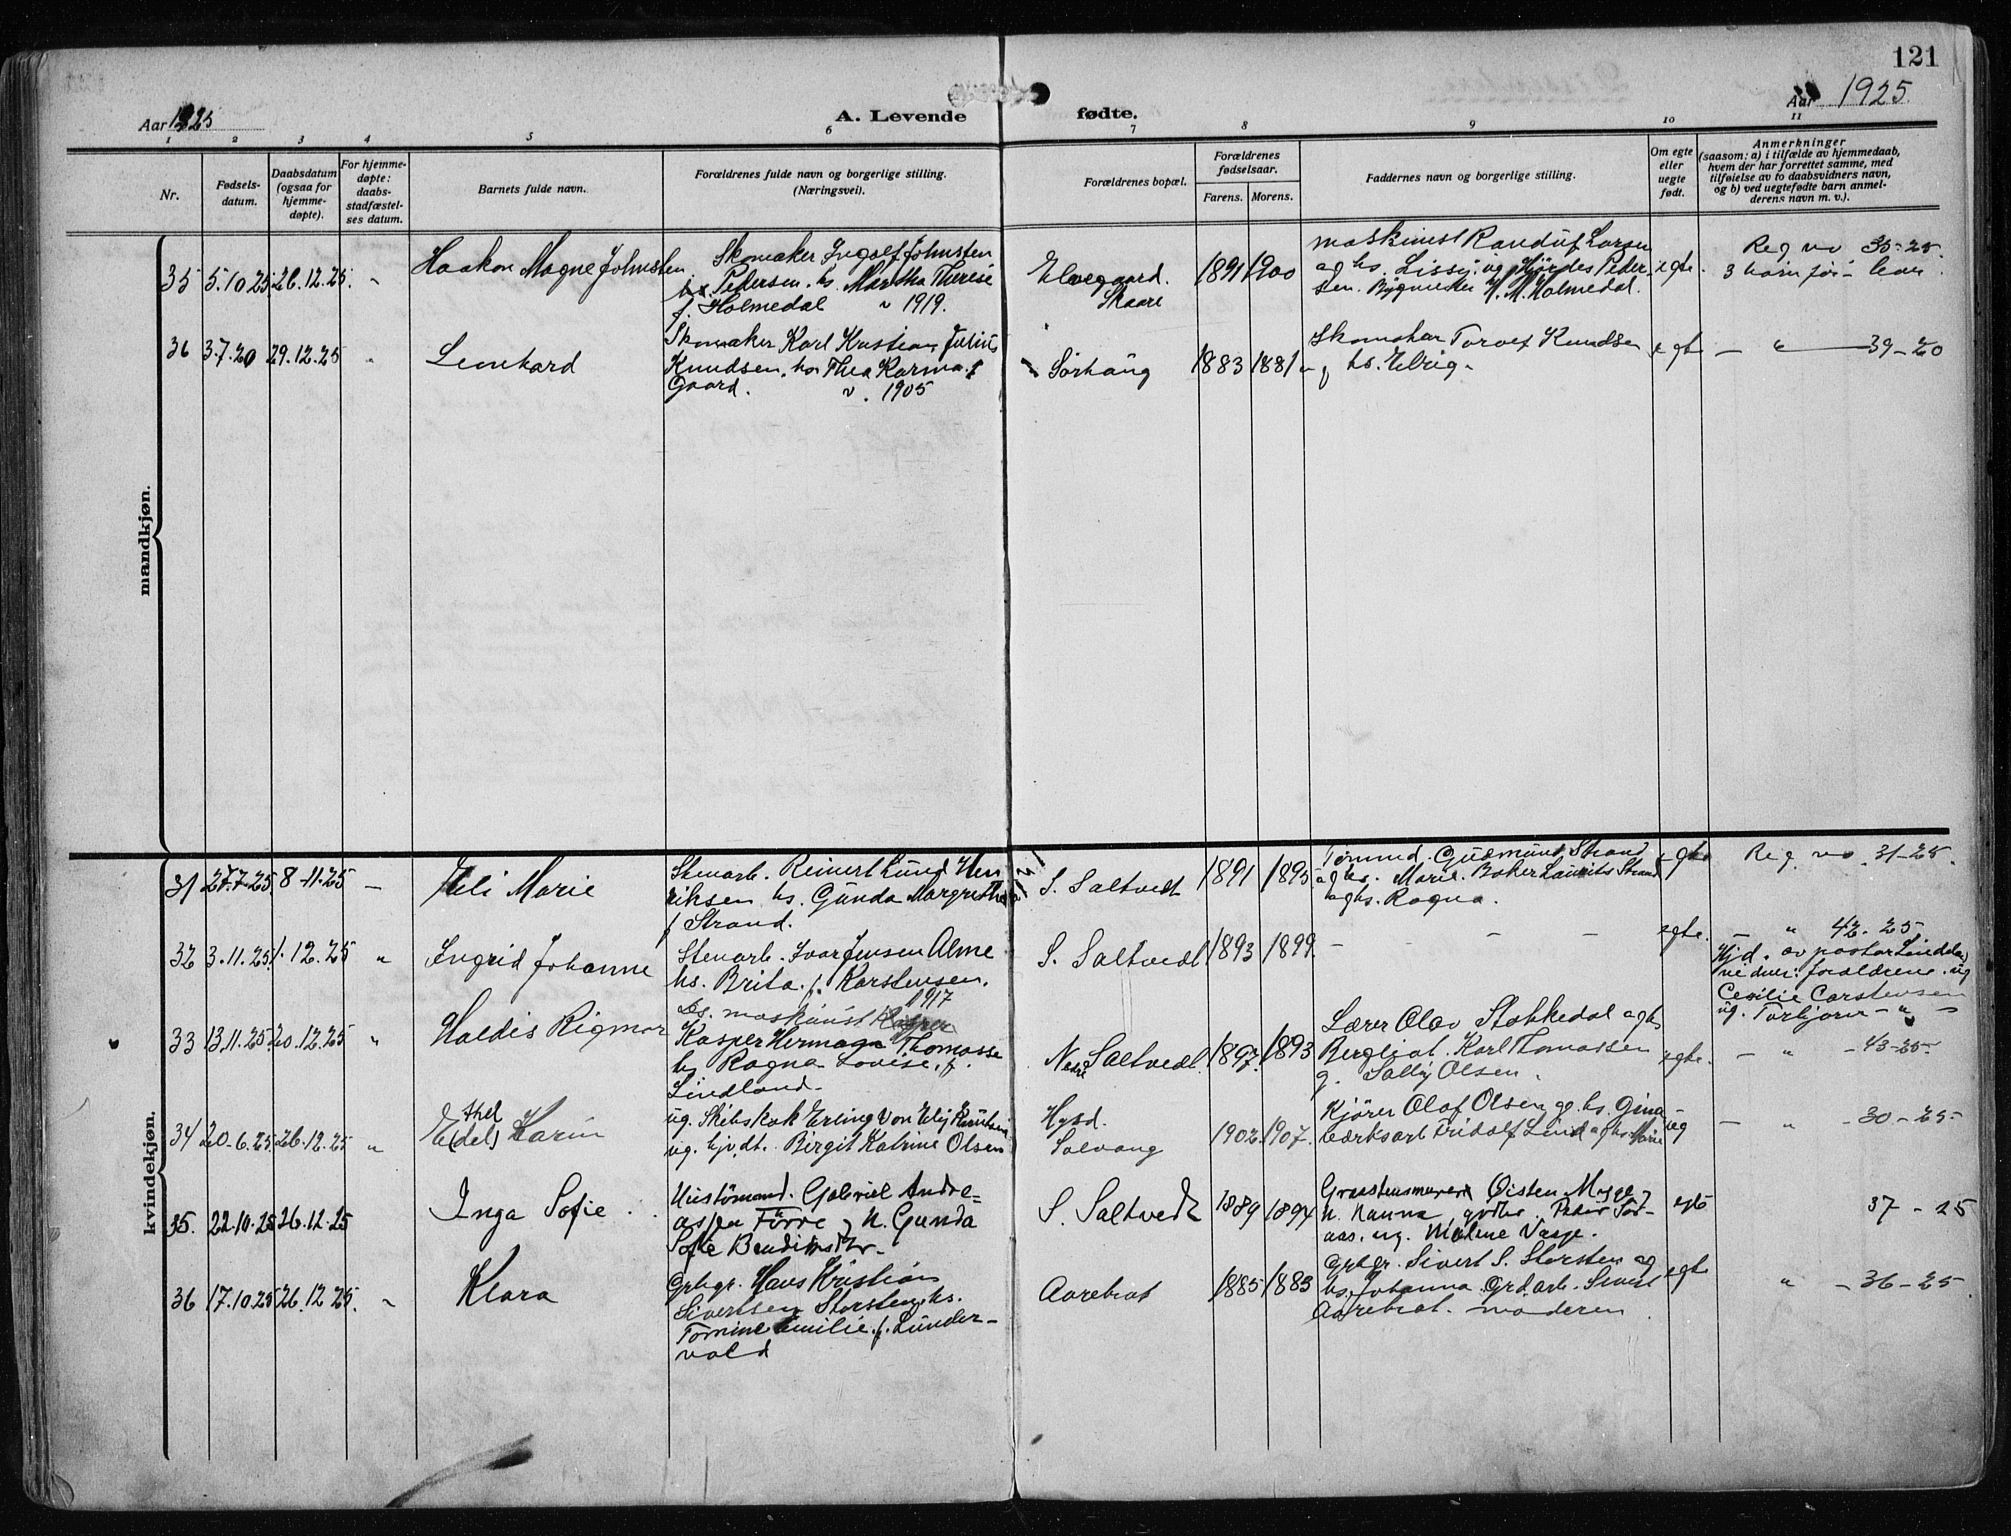 121
Aar 1925
A. Levende fødte.
Aar 1925.
1 2 3 4 5 6 7 8 9 10 11
Nr.
Fødsels-
datum.
Daabsdatum
(ogsaa for
hjemme-
døpte).
For hjemme-
døpte:
daabs-
stadfæstel-
ses datum.
Barnets fulde navn.
Forældrenes fulde navn og borgerlige stilling.
(Næringsvei).
Forældrenes bopæl.
Forældrenes
fødselsaar.
Farens. Morens.
Faddernes navn og borgerlige stilling.
Om egte
eller
uegte
født.
Anmerkninger
(saasom: a) i tilfælde av hjemmedaab,
hvem der har forrettet samme, med
tilføielse av to daabsvidners navn,
og b) ved uegtefødte barn anmel-
derens navn m. v.).
mandkjøn.
35 5.10.25 26.12.25 "
Haakon Magne Johnsten
Skomaker Ingolf Johnsten
Pedersen. hs. Martha Therese
f. Holmedal v 1919.
Elvegaard.
Skaare
1891 1900
maskinist Randulf Larsen
og hs. Lissy. ug Hjørdes Peder-
sen. Bygmester H. M. Holmedal.
egte.
Reg no 35-25.
3 barn før - leve.
36 3.7.20 29.12.25 "
Lenhard
Skomaker Karl Kristian Julius
Knudsen. hs. Thea Karma f
Gaard. v. 1905
Sørhaug
1883 1881
Skomaker Torolf Knudsen
hs. Elvig
egte
— " — 39-20
kvindekjøn.
31 27.7.25 8-11.25 —
Eli Marie
Stenarb. Reinert Lund Hen
riksen hs. Gunda Margrethe
f Strand.
S. Saltvedt
1891 1895
Tømmd. Gudmund Strand
og hs. Marie. Baker Laurits Strand
og hs. Ragna.
egte
Reg no. 31-25.
32 3.11.25 1.12.25 "
Ingrid Johanne
Stenarb. Ivar Jensen Alme
hs. Brita. f. Karstensen.
1917
S. Saltvedt
1893 1899
— — — —
egte.
— " 42-25
Hjd. av pastor Lindeland
vidner: foraldrene. ug
Cecilie Carstensen
ug. Torbjørn - " -
33 13.11.25 20.12.25 "
Haldis Rigmor
Ds. maskinist
Kasper Herman Thomasse
hs Ragna Lovise. f.
Lindland.
Nedre Saltvedt
1897. 1893
Lærer Olav Stokkedal og hs
Bergliot. Karl Thomassen
g. Sally Olsen.
egte.
— " - 43-25.
34 20-6.25 26.12.25 "
Ethel (del) Karin
ug. Skibskok Erling Von
ug. hjv. dt. Birgit Katrine Olsen
Hgsd.
Solvang
1902. 1907.
Kjører Olaf Olsen og hs. Gina
Værksarb Fridolf Lind og hs. Marie
ug
— " - 30-25
35. 22.10.25 26.12.25
Inga Sofie
Hustømand. Gabriel Andre-
assen Førre, H. Gunda
Sofie Bendiksdtr.
S. Saltvedt
1889 1894
Graastensmurer Øisten
H. Nanna gdbr. Peder
aas. ug. Malene Vaage.
egte
37-25
36 17.10.25 26.12.25. "
Klara
Grbgr. Hans Kristian
Sivertsen Storsten hs.
Tomine Emilie f. Lunder-
vold
Aarebrot
1885 1883
Grbgr. Sivert S. Storsten og
hs. Johanna. Grd.arb. Sivert
Aarebrot. moderen
egte
" - 36-25